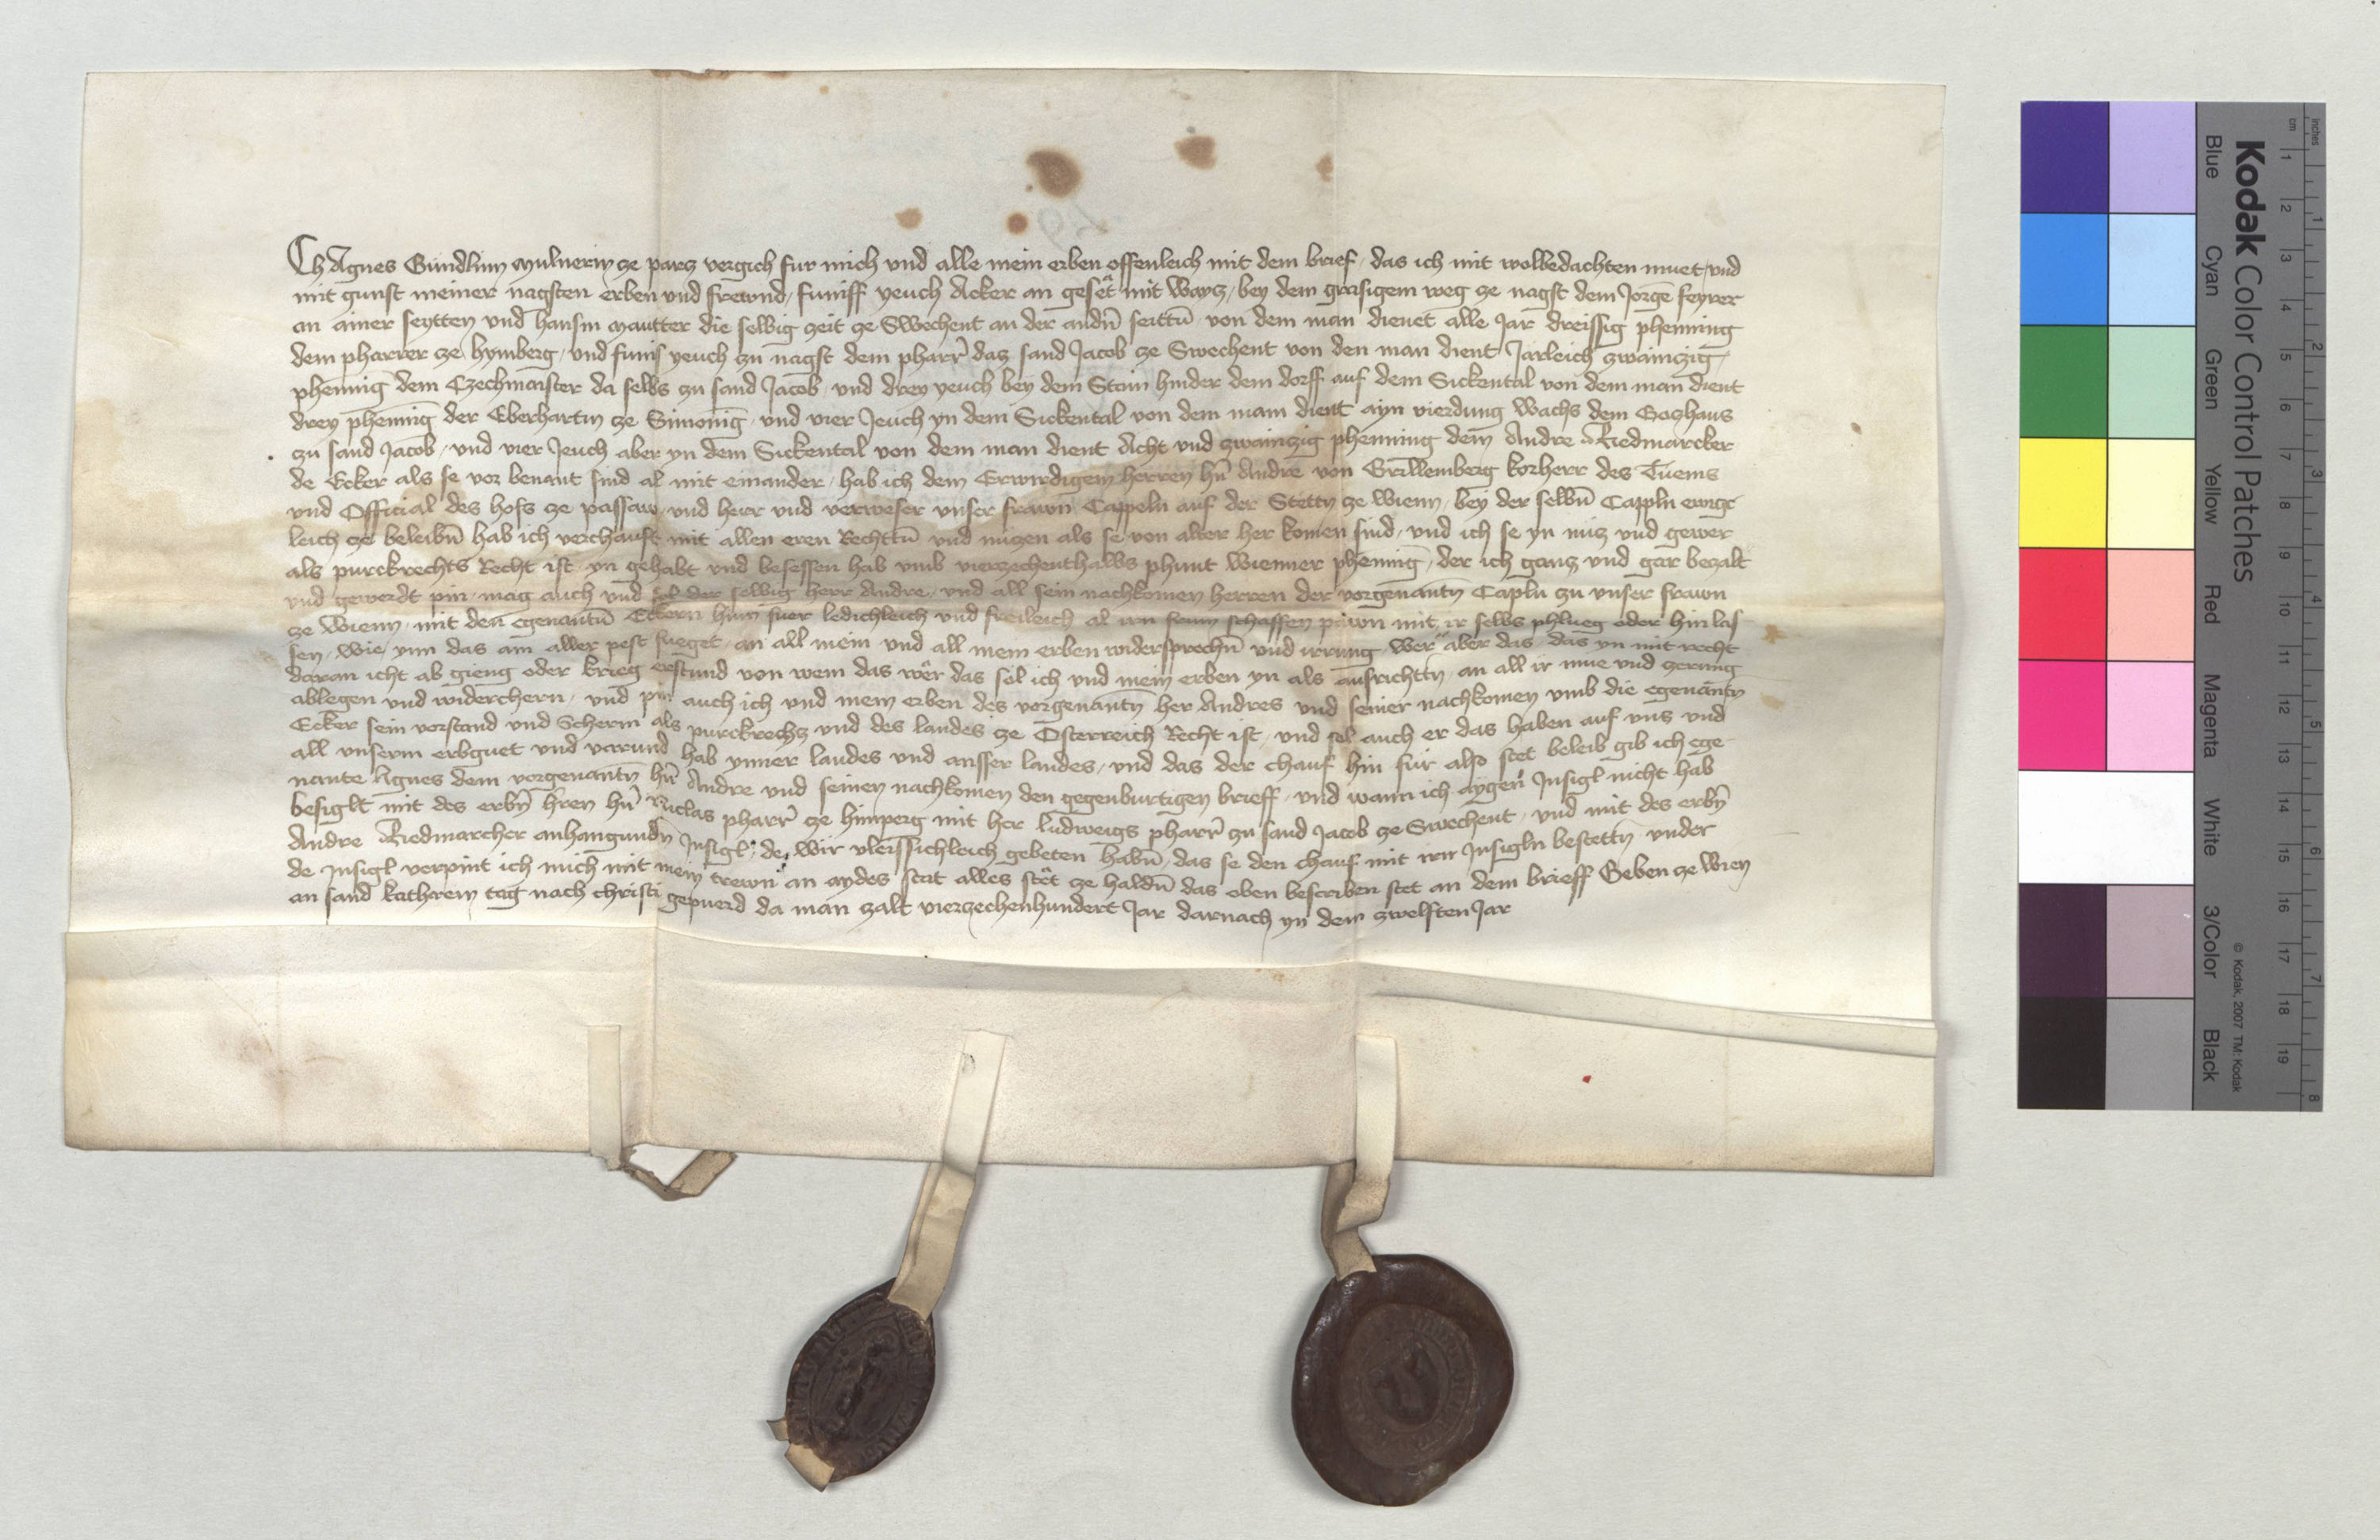 Ich Agnes Gundlinn mulnerin ze parz vergich fur mich und alle mein erben offenleich mit dem brief das ich mit wolbedachten muet und
mit gunst meiner nagsten erben und frewnd funiff yeuch Acker an geset mit Wayz bey dem grasigem weg ze nagst dem Jorgē feyrer
an ainer seytten und hansm mautter die selbig zeit ze Swechent an der andn̄ seittn̄ von dem man dienet alle Jar dreissig phenning
dem pharrer ze hymberg und funif yeuch zu nagst dem pharr̄ daz sand Jacob ze Swechent von den man dient Jarleich zwainzig
phenning dem Czechmaister da selbs zu sand Jacob und drey yeuch bey dem Stain hinder dem dorff auf dem Sickental von dem man dient
drey phennig der Eberhartin ze Simonig und vier Jeuch yn dem Sickental von dem mam dient ayn vierdung wachs dem Gozhaus
zu sand Jacob und vier Jeuch aber yn dem Sickental von dem man dient Acht und zwainzig phenning dem Andre Riedmarcker
de Ecker als se vor benant sind al mit einander hab ich dem Erwirdigem herren hn̄ Andre von Grillemberg korherr des Tuems
und Official des hofs ze passaw und herr und verweser unser frawn Cappeln auf der Stettn ze wienn bey der selbn̄ Cappln ewige
leich ze beleibn̄ hab ich verchauft mit allen eren Rechttn̄ und nuzen als se von alter her komen sind und ich se yn nuz und gewer
als purckrechts Recht ist yn gehabt und besessen hab umb vierzechenthalbs phunt Wienner phenning der ich ganz und gar bezalt
und gewerdt pin mag auch und sol der selbig herr Andre und all sein nachkomen herren der vorgenantn Capln zu unser frawn
ze wienn mit den egenantn̄ Eckern hinn fuer ledichleich und freileich al irn frum schaffen pawn mit ir selbs phlueg oder hin las
sen wie ynn das am aller pest fueget an all mein und all mein erben widersprechn̄ und irrung Wer aber das das yn mit recht
daran icht ab gieng oder krieg erstund von wem das wer das sol ich und mein erben yn als ausrichttn an all ir mue und zerung
ablegen und widerchern und pin auch ich und mein erben des vorgenantn her Andres und seiner nachkomen umb die egenantn
Ecker sein vorstand und Scherm als purckrechz und des landes ze Osterreich Recht ist und sol auch er das haben auf uns und
all unserm erbguet und varund hab ynner landes und ausser landes und das der chauf hin fur also stet beleib gib ich ege
nante Agnes dem vorgenantn hn̄ Andre und seinen nachkomen den gegenburtigen brieff und wann ich aygen Insigl nicht hab
besiglt mit des erbn̄ h̄ren hn̄ Niclas pharr̄ ze himperg mit her ludweigs pharr̄ zu sand Jacob ze Swechent und mit des erbn̄
Andre Riedmarcher anhangundn Insigl de wir vleissichleich gebeten habn̄ das se den chauf mit irn Insigln bestettn under
de Insigl verpint ich mich mit mein trewn an aydes stat alles stet ze haldn̄ das oben bescriben stet an dem brieff Geben ze Wien
an sand kathrein tag nach christi gepuerd da man zalt vierzechenhundert Jar darnach yn dem zwelften Jar
Kodak Color Control Patches
Blue Cyan Green Yellow Red Magenta White 3/Color Black
© Kodak, 2007 TM: Kodak
inches 1 2 3 4 5 6 7 8
cm 1 2 3 4 5 6 7 8 9 10 11 12 13 14 15 16 17 18 19